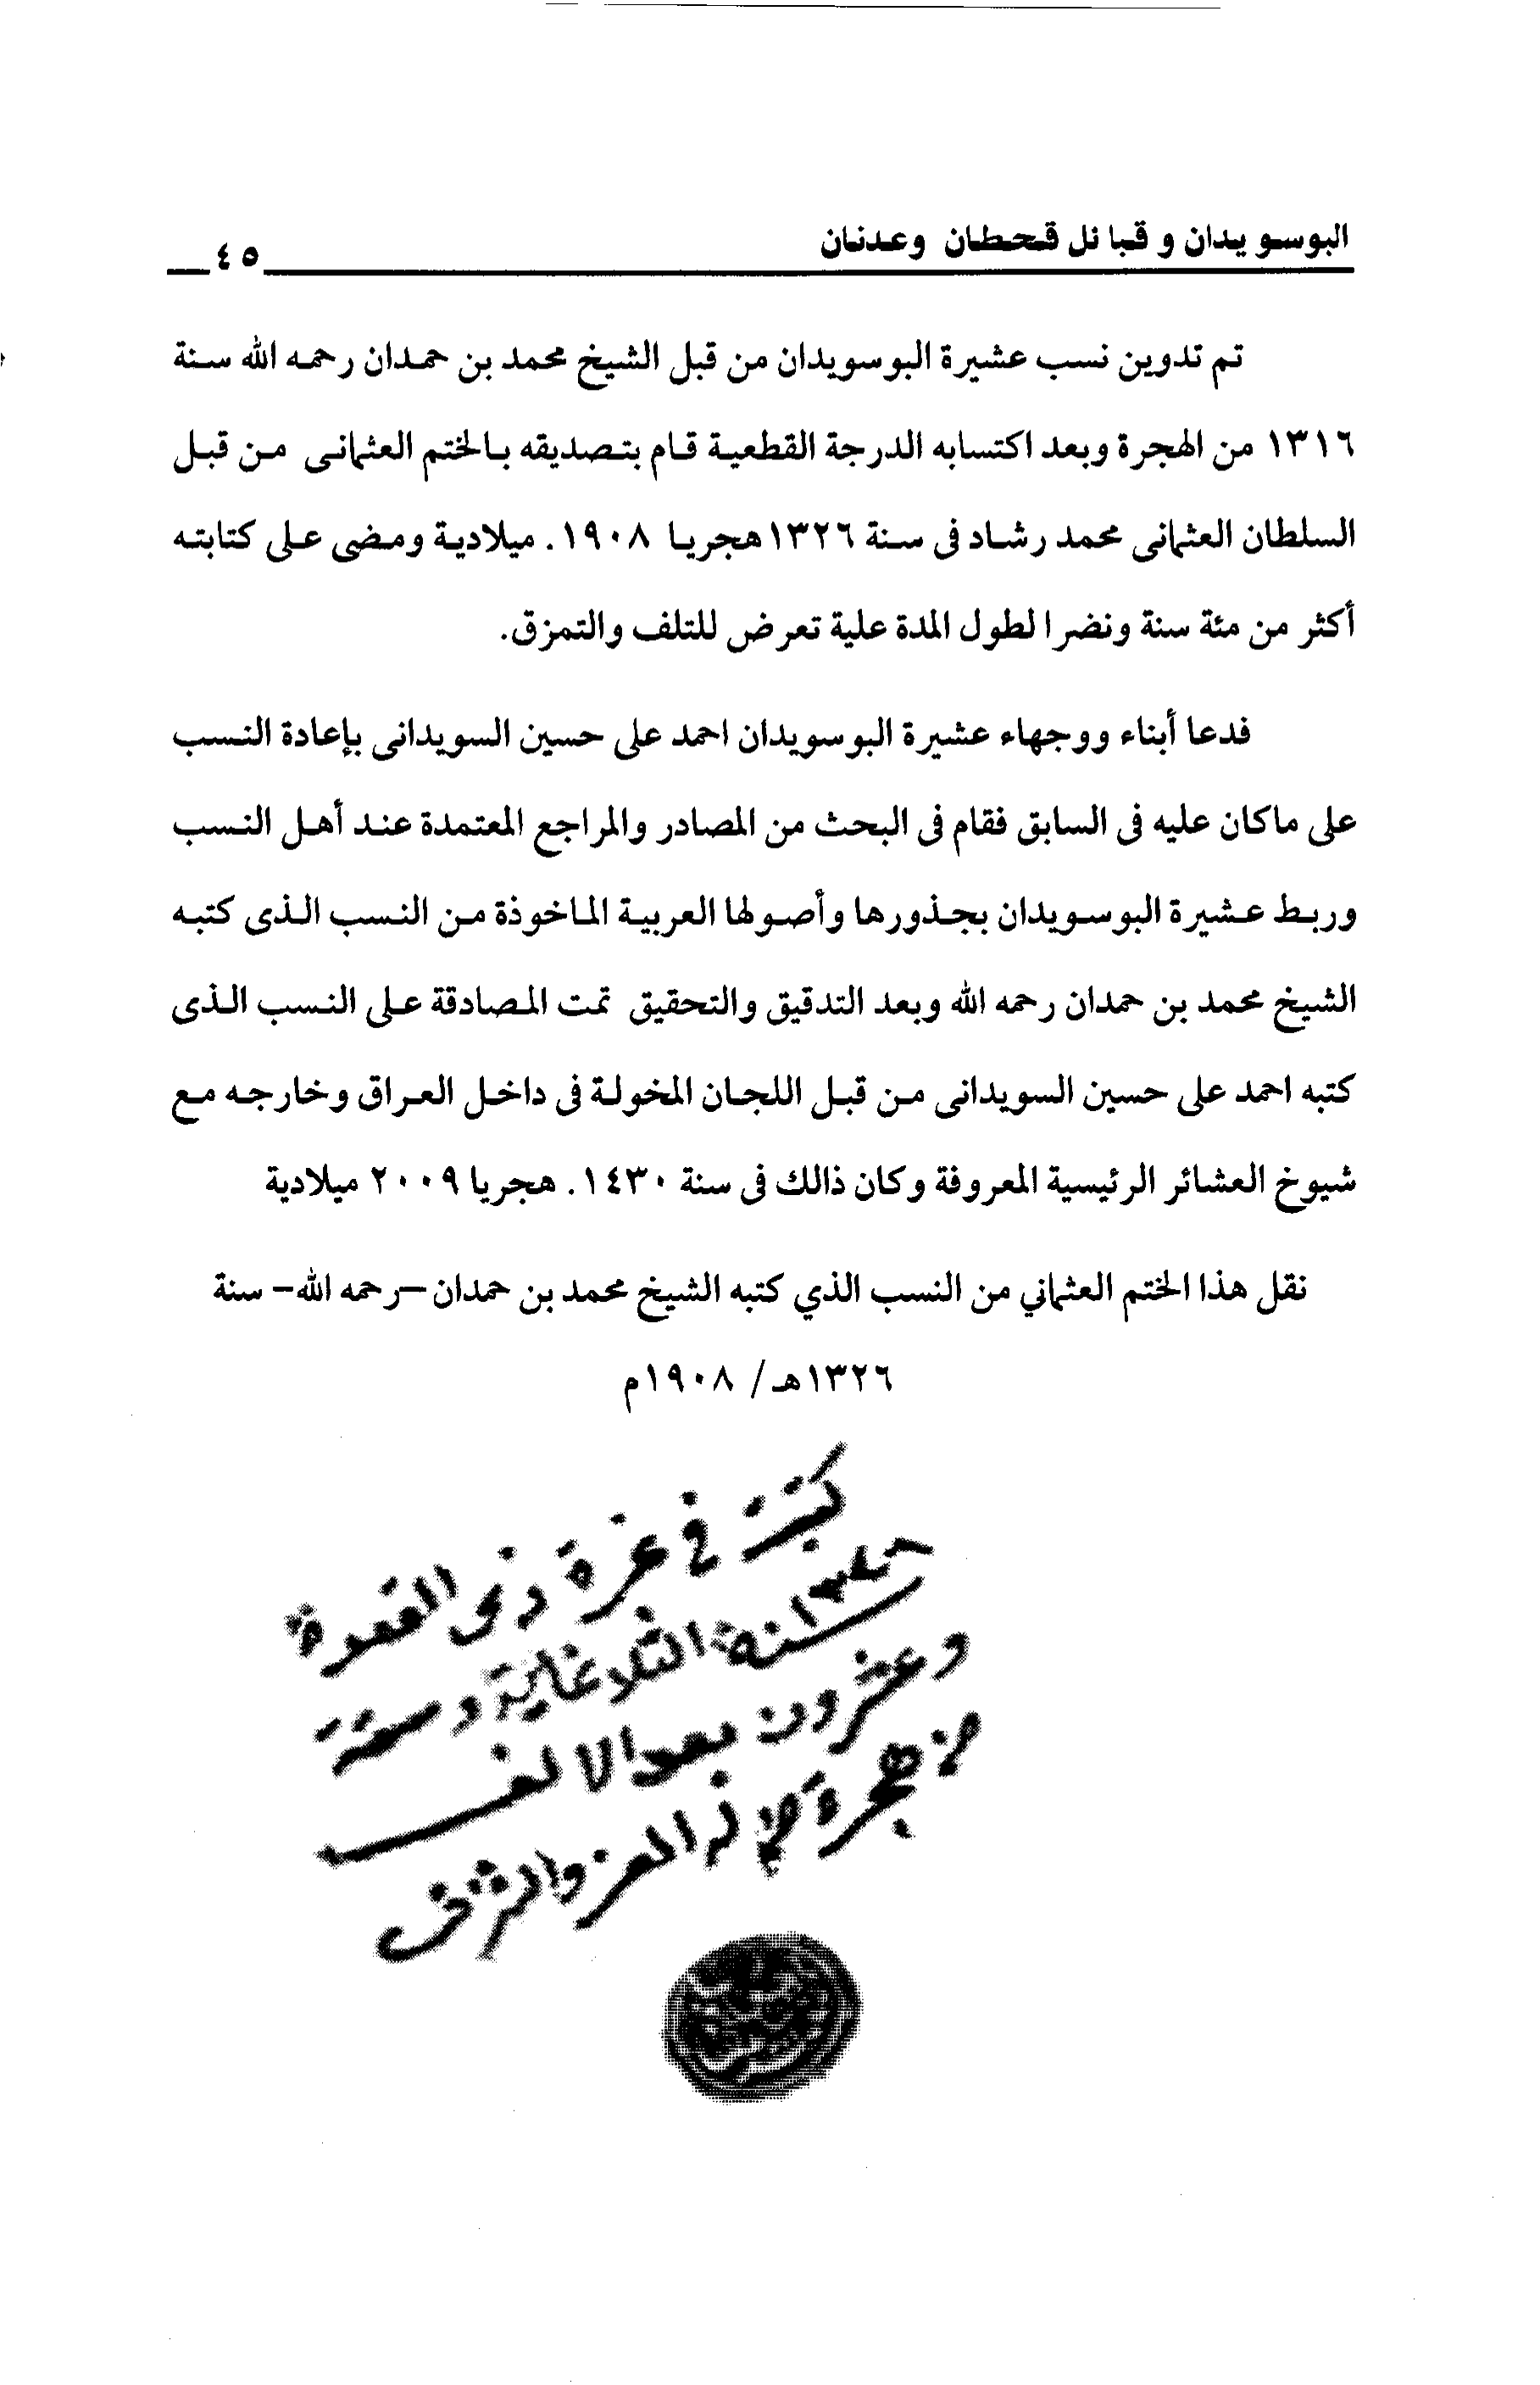 البوسويدان وقبائل قحطان وعدنان
٤٥
تم تدوين نسب عشيرة البوسويدان من قبل الشيخ محمد بن حمدان رحمه الله سنة
١٣١٦ من الهجرة وبعد اكتسابه الدرجة القطعية قام بتصديقه بالختم العثمانى من قبل
السلطان العثمانى محمد رشاد فى سنة ١٣٢٦هجريا ١٩٠٨. ميلادية ومضى على كتابته
أكثر من مئة سنة ونضرا لطول المدة علية تعرض للتلف والتمزق.
فدعا أبناء ووجهاء عشيرة البوسويدان احمد على حسين السويدانى بإعادة النسب
على ماكان عليه فى السابق فقام فى البحث من المصادر والمراجع المعتمدة عند أهل النسب
وربط عشيرة البوسويدان بجذورها وأصولها العربية الماخوذة من النسب الذى كتبه
الشيخ محمد بن حمدان رحمه الله وبعد التدقيق والتحقيق تمت المصادقة على النسب الذى
كتبه احمد على حسين السويدانى من قبل اللجان المخولة فى داخل العراق وخارجه مع
شيوخ العشائر الرئيسية المعروفة وكان ذالك فى سنة ١٤٣٠. هجريا ٢٠٠٩ ميلادية
نقل هذا الختم العثماني من النسب الذي كتبه الشيخ محمد بن حمدان –رحمه الله– سنة
١٣٢٦هـ/ ١٩٠٨م
كتبت في غرة ذى القعدة
سنة الثلاثماية وستة
وعشرون بعد الالف
من هجرة من له العز والشرف